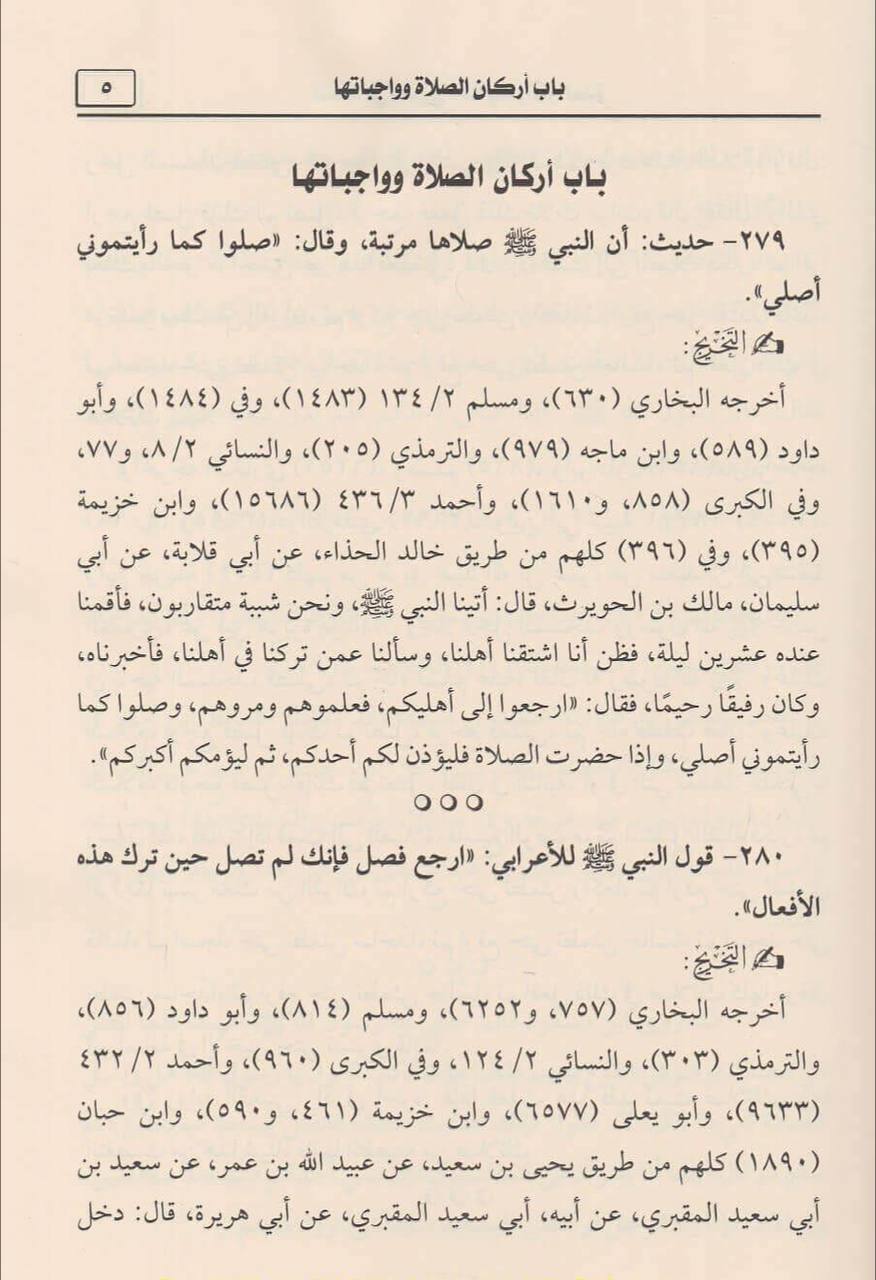 باب أركان الصلاة وواجباتها
٥
باب أركان الصلاة وواجباتها
٢٧٩- حديث: أن النبي ﷺ صلاها مرتبة، وقال: «صلوا كما رأيتموني
أصلي».
✍ التخريج:
أخرجه البخاري (٦٣٠)، ومسلم ٢/ ١٣٤ (١٤٨٣)، وفي (١٤٨٤)، وأبو
داود (٥٨٩)، وابن ماجه (٩٧٩)، والترمذي (٢٠٥)، والنسائي ٢/ ٨، و٧٧،
وفي الكبرى (٨٥٨، و١٦١٠)، وأحمد ٣/ ٤٣٦ (١٥٦٨٦)، وابن خزيمة
(٣٩٥)، وفي (٣٩٦) كلهم من طريق خالد الحذاء، عن أبي قلابة، عن أبي
سليمان، مالك بن الحويرث، قال: أتينا النبي ﷺ، ونحن شببة متقاربون، فأقمنا
عنده عشرين ليلة، فظن أنا اشتقنا أهلنا، وسألنا عمن تركنا في أهلنا، فأخبرناه،
وكان رفيقًا رحيمًا، فقال: «ارجعوا إلى أهليكم، فعلموهم ومروهم، وصلوا كما
رأيتموني أصلي، وإذا حضرت الصلاة فليؤذن لكم أحدكم، ثم ليؤمكم أكبركم».
٢٨٠- قول النبي ﷺ للأعرابي: «ارجع فصل فإنك لم تصل حين ترك هذه
الأفعال».
✍ التخريج:
أخرجه البخاري (٧٥٧، و٦٢٥٢)، ومسلم (٨١٤)، وأبو داود (٨٥٦)،
والترمذي (٣٠٣)، والنسائي ٢/ ١٢٤، وفي الكبرى (٩٦٠)، وأحمد ٢/ ٤٣٢
(٩٦٣٣)، وأبو يعلى (٦٥٧٧)، وابن خزيمة (٤٦١، و٥٩٠)، وابن حبان
(١٨٩٠) كلهم من طريق يحيى بن سعيد، عن عبيد الله بن عمر، عن سعيد بن
أبي سعيد المقبري، عن أبيه، أبي سعيد المقبري، عن أبي هريرة، قال: دخل